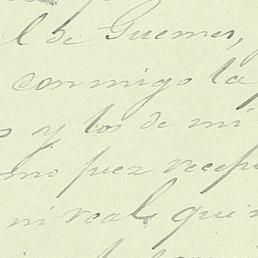 l de Guemes,
conmigo la
y los de mi
mo juez recep
ni real qui